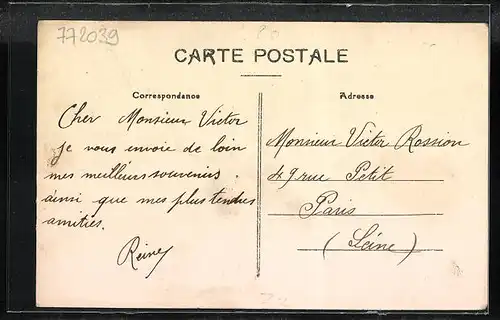 772039
CARTE POSTALE
Correspondance
Cher Monsieur Victor
je vous envoie de loin
mes meilleurs souvenirs.
ainsi que mes plus tendres
amitiés.
Reine
Adresse
Monsieur Victor Rossion
49 rue Petit
Paris
(Seine)